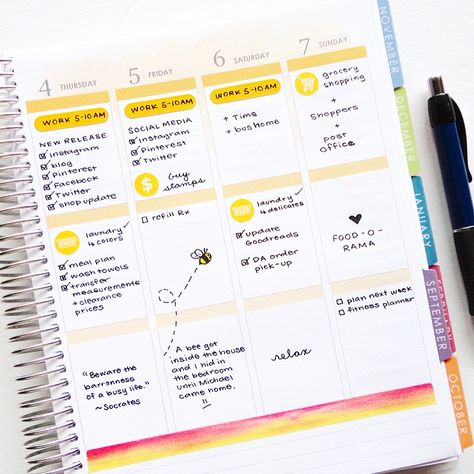 4 THURSDAY
WORK 5-10AM
NEW RELEASE
Instagram
blog
Pinterest
Facebook
Twitter
shop update
laundry
↳ colors
meal plan
wash towels
transfer
measurements
+ clearance
prices
"Beware the
barrenness
of a busy life."
~Socrates
5 FRIDAY
WORK 5-10AM
SOCIAL MEDIA
Instagram
Pinterest
Twitter
$
Buy
stamps
refill Rx
A bee got
inside the house
and I hid in
the bedroom
until Michael
came home.
!!
6 SATURDAY
WORK 5-10AM
+ Tims
+ bus home
laundry
↳ delicates
update
Goodreads
DA order
pick-up
relax
7 SUNDAY
grocery
shopping
+
shoppers
+
post
office
♥
FOOD-O-
RAMA
plan next week
fitness planner
NOVEMBER
DECEMBER
JANUARY
FEBRUARY
SEPTEMBER
OCTOBER